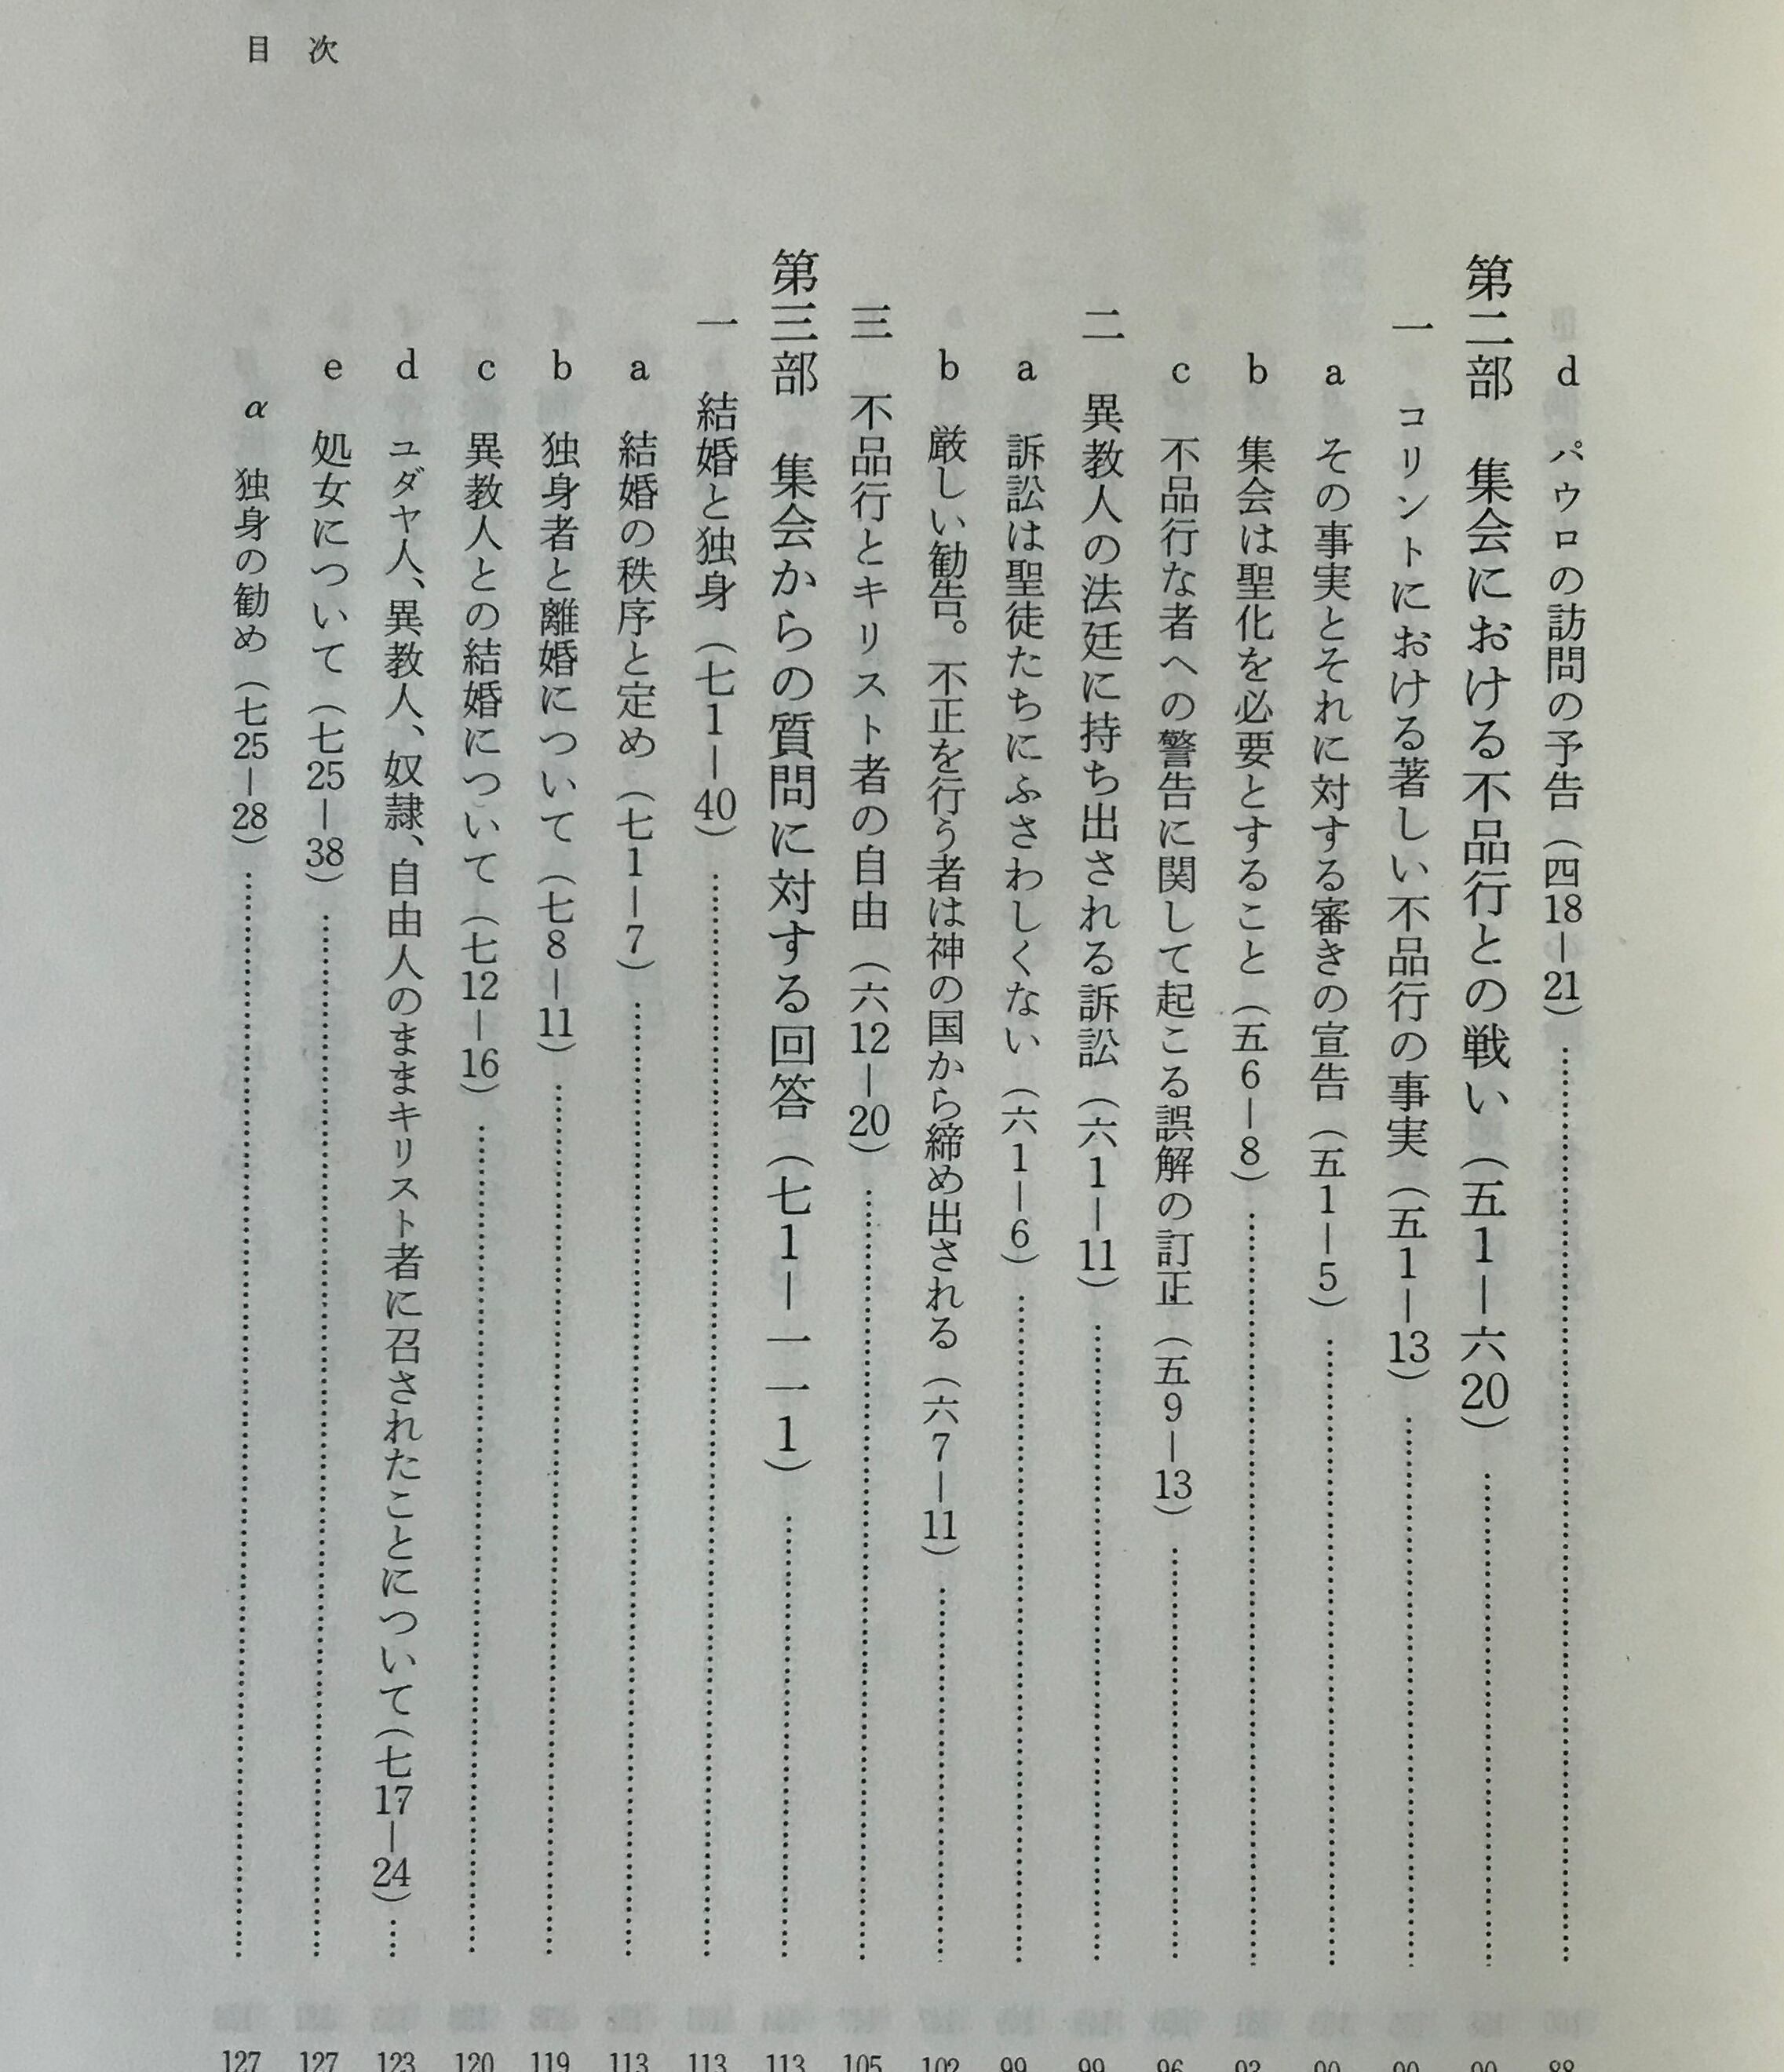 目次
d パウロの訪問の予告（四18―21）……88
第二部 集会における不品行との戦い（五1―六20）……90
一 コリントにおける著しい不品行の事実（五1―13）……90
a その事実とそれに対する審きの宣告（五1―5）……90
b 集会は聖化を必要とすること（五6―8）……93
c 不品行な者への警告に関して起こる誤解の訂正（五9―13）……96
二 異教人の法廷に持ち出される訴訟（六1―11）……99
a 訴訟は聖徒たちにふさわしくない（六1―6）……99
b 厳しい勧告。不正を行う者は神の国から締め出される（六7―11）……102
三 不品行とキリスト者の自由（六12―20）……105
第三部 集会からの質問に対する回答（七1―一一1）……113
一 結婚と独身（七1―40）……113
a 結婚の秩序と定め（七1―7）……113
b 独身者と離婚について（七8―11）……119
c 異教人との結婚について（七12―16）……120
d ユダヤ人、異教人、奴隷、自由人のままキリスト者に召されたことについて（七17―24）……123
e 処女について（七25―38）……127
α 独身の勧め（七25―28）……127